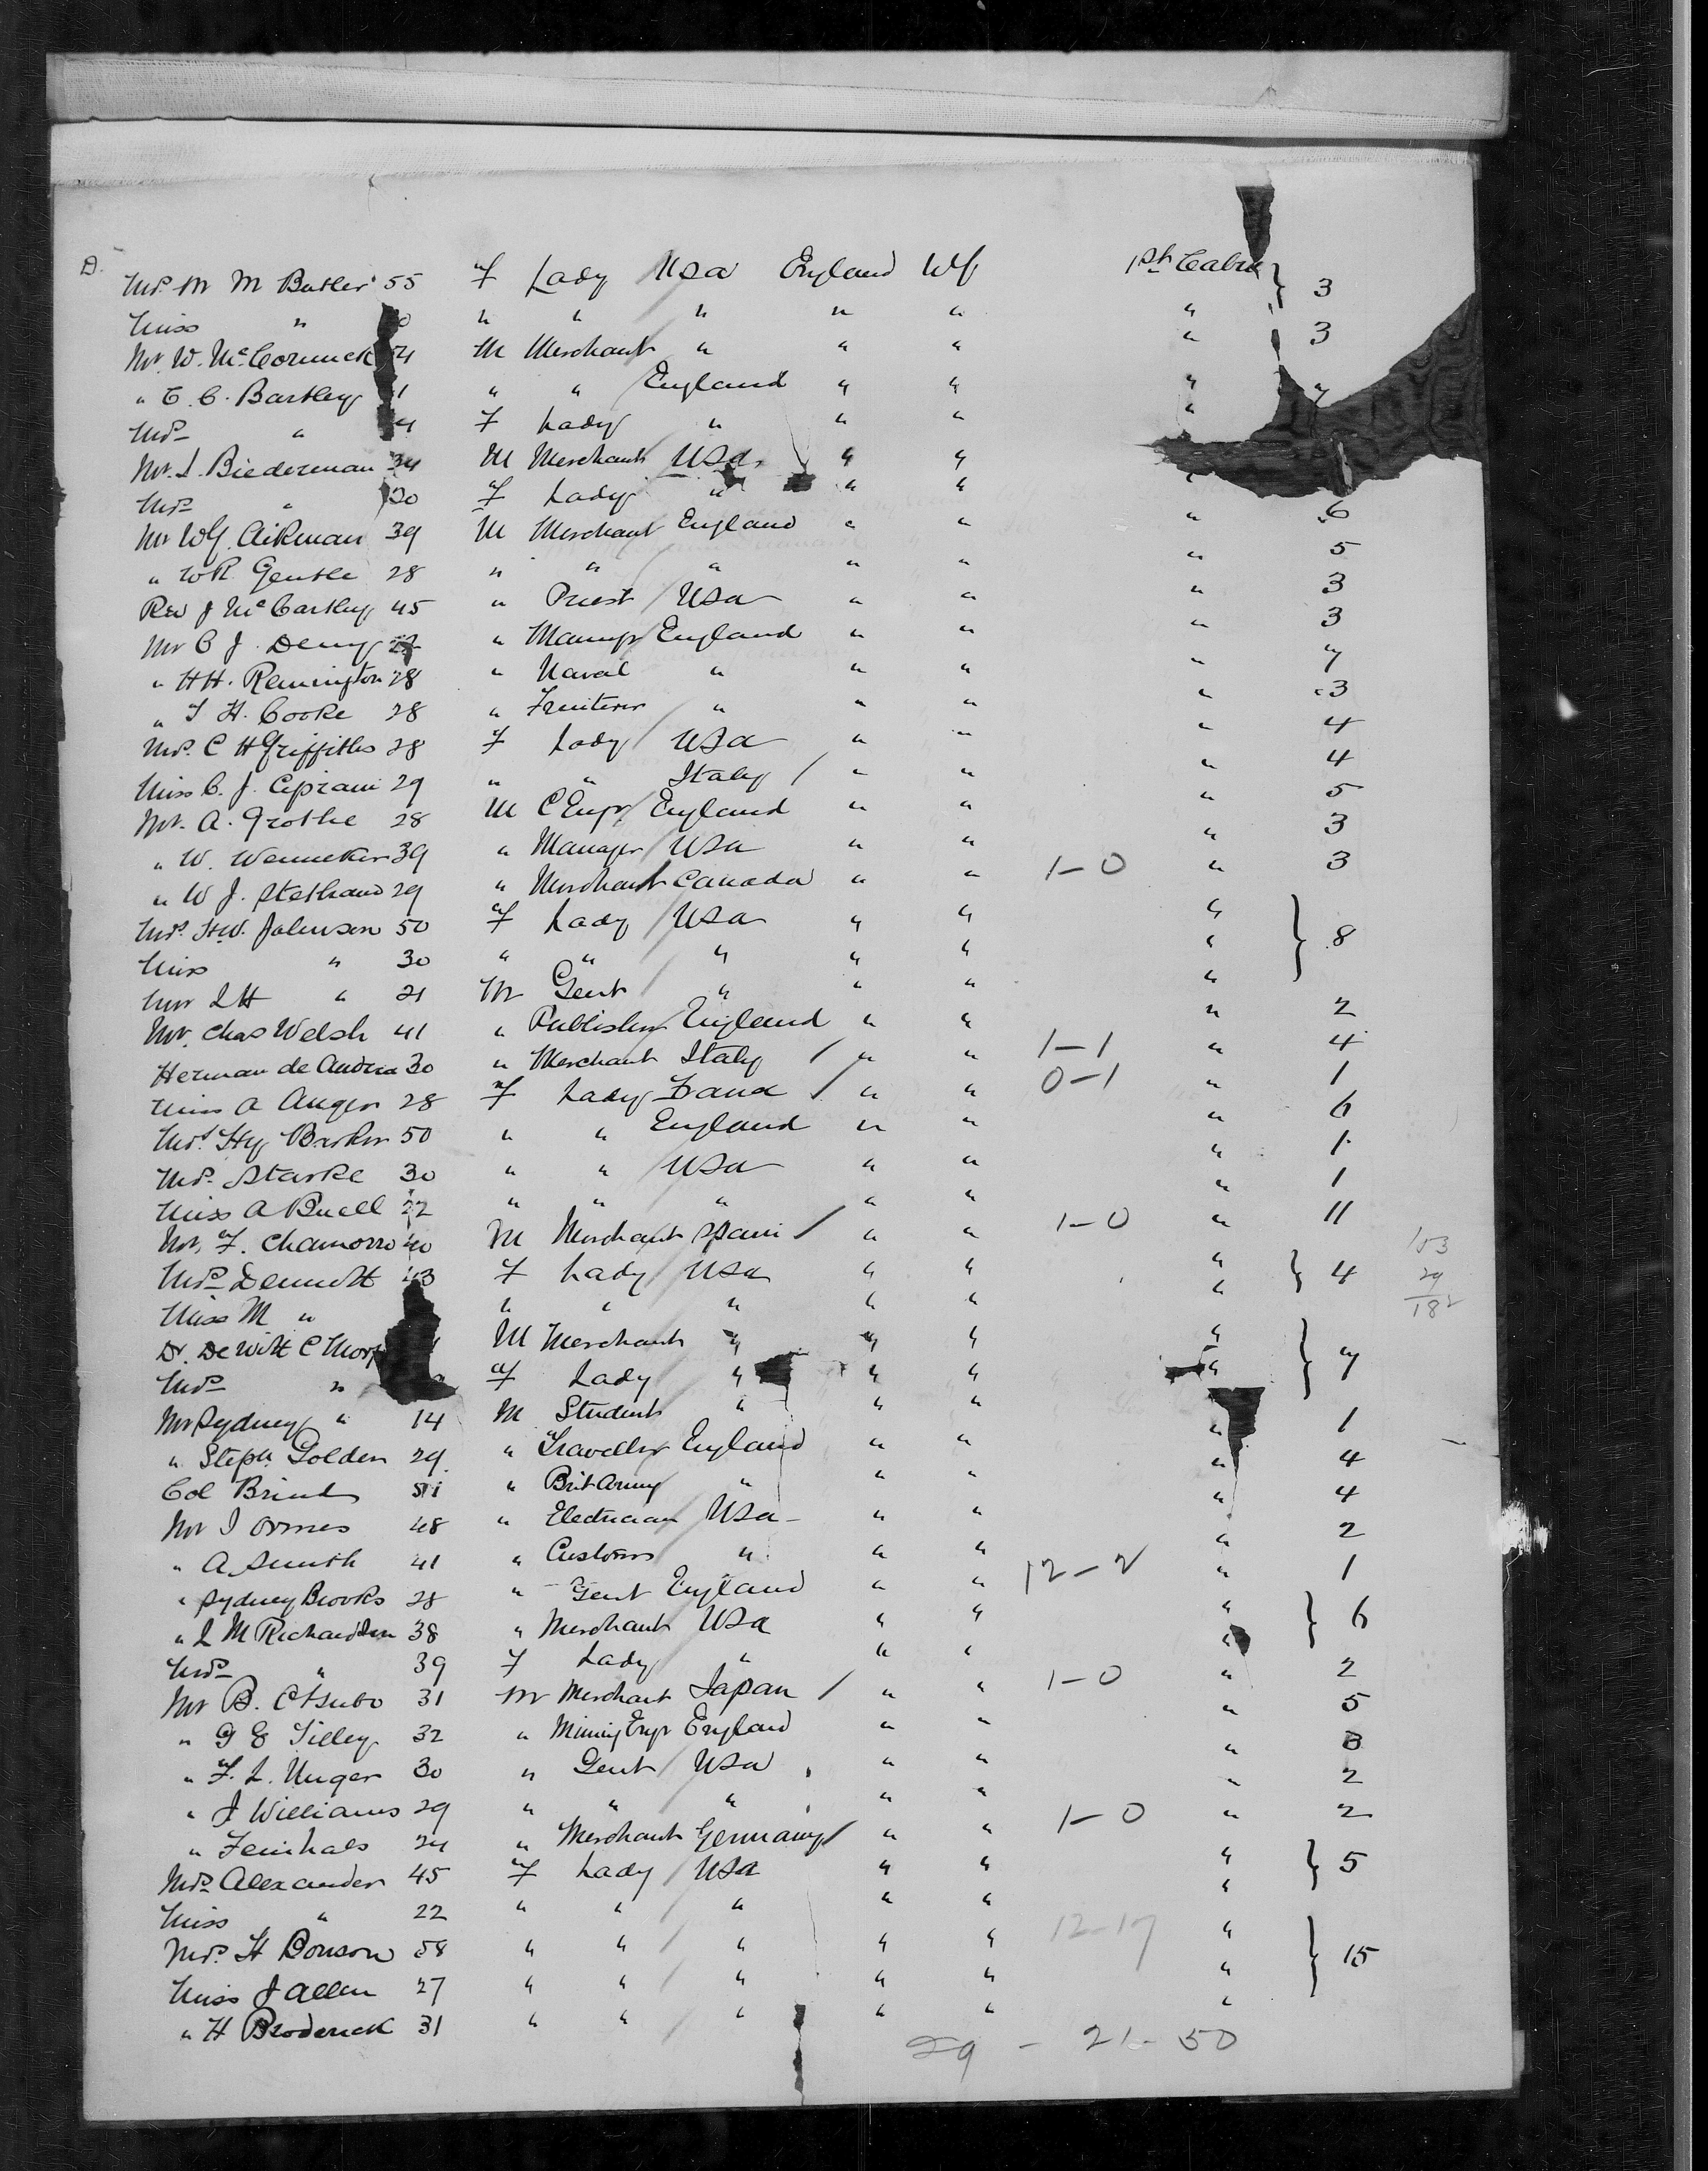 D.
Mrs. M M Butler 55 F Lady USA England Wf 1st Cabin } 3
Miss " " " " " " "
Mr. W. McCormick M Merchant " " " " 3
" C. C. Bartley 1 " " England " " "
Mrs " 4 F Lady " " " "
Mr. L. Biederman 34 M Merchant USA " "
Mrs " 20 F Lady " " "
Mr WG. Aikman 39 M Merchant England " " " 6
" WR Gentle 28 " " " " " " 5
Rev J McCarthy 45 " Priest USA " " " 3
Mr C J. Demy " Manuf England " " " 3
" HH. Remington 28 " Naval " " " " 7
" T H. Cooke 28 " Fruiterer " " " " 3
Mrs. C H Griffiths 28 F Lady USA " " " 4
Miss C. J. Cipriani 29 " " Italy / " " " 4
Mr. A. Grothe 28 M C Engr England " " " 5
" W. Wenneker 39 " Manager USA " " " 3
" W J. Stethand 29 " Merchant Canada " " 1-0 " 3
Mrs. H.W. Johnson 50 F Lady USA " " " } 8
Miss " 30 " " " " " "
Mr L H " 21 M Gent " " " "
Mr. Chas Welsh 41 " Publisher England " " " 2
Herman de Andrea 30 " Merchant Italy / " " 1-1 " 4
Miss A Auger 28 F Lady France / " " 0-1 " 1
Mrs. Hy Barker 50 " " England " " " 6
Mrs. Starke 30 " " USA " " " 1
Miss A Buell 22 " " " " " " 1
Mr. F. Chamorro 40 M Merchant Spain / " " 1-0 " 11
Mrs Dennett 43 F Lady USA " " " } 4 153
Miss M " " " " " " " 29
182
Dr. De Witt C M Merchant " " " " } 7
Mrs " F Lady " " " "
Mr Sydney " 14 M Student " " "
" Steph Golden 29 " Traveller England " " " 1
Col Brind 51 " Brit Army " " " " 4
Mr J Ormes 48 " Electrician USA " " " 4
" A Smith 41 " Customs " " " " 2
" Sydney Brooks 28 " Gent England " " 12-2 " 1
" L M Richardson 38 " Merchant USA " " " } 6
Mrs " 39 F Lady " " " "
Mr B. Otsubo 31 M Merchant Japan / " " 1-0 " 2
" G E Tilley 32 " Mining Engr England " " " 5
" F. L. Unger 30 " Gent USA " " " 3
" J Williams 29 " " " " " " 2
" Feinhals 24 " Merchant Germany / " " 1-0 " 2
Mrs Alexander 45 F Lady USA " " " } 5
Miss " 22 " " " " " "
Mrs. H Bonson 58 " " " " " 12-17 " } 15
Miss J Allen 27 " " " " " "
" H Broderick 31 " " " " " "
29 - 21 - 50